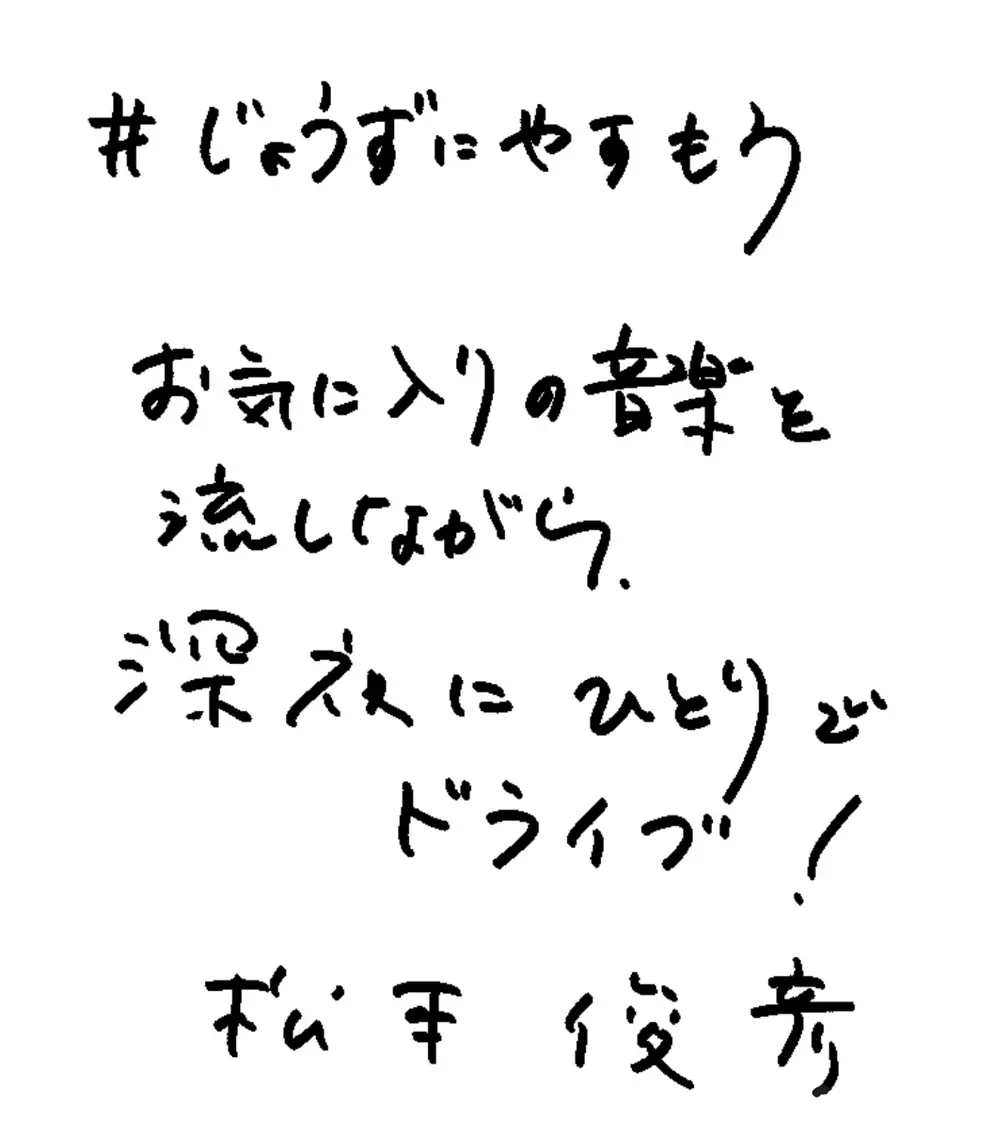 #じょうずにやすもう
お気に入りの音楽を
流しながら、
深夜にひとりで
ドライブ!
松平 俊彦